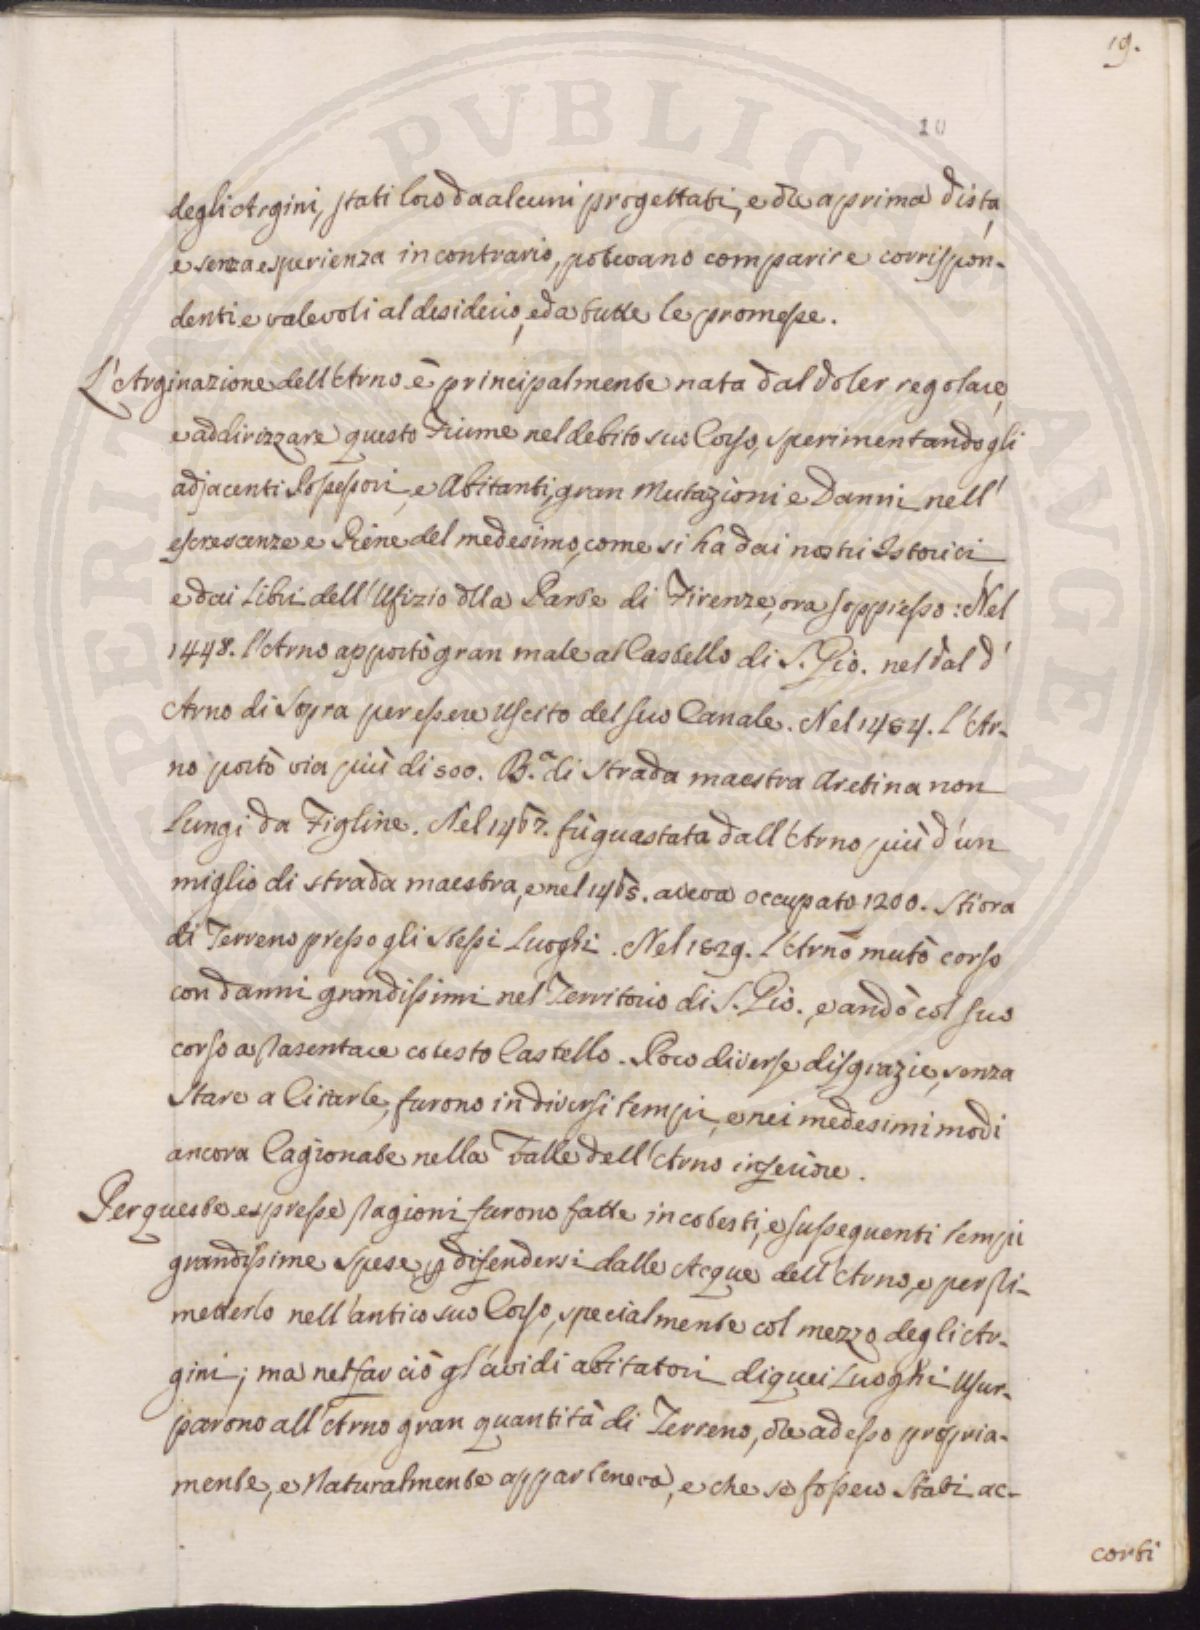 19.
10
degli Argini, stati loro da alcuni progettati, e che a prima vista,
e senza esperienza in contrario, potevano comparire corrispon-
denti e valevoli al desiderio, ed a tutte le promesse.
L'Arginazione dell'Arno è principalmente nata dal voler regolare,
e addirizzare questo Fiume nel debito suo Corso, sperimentando gli
adjacenti Possessori, e Abitanti, gran Mutazioni e Danni nell'
escrescenze e Piene del medesimo, come si ha dai nostri Istorici
e dai Libri dell'Ufizio dlla Parte di Firenze, ora soppresso: Nel
1448. l'Arno apportò gran male al Castello di S. Gio. nel Val d'
Arno di Sopra per essere Uscito del suo Canale. Nel 1454. l'Ar-
no portò via più di 500. B.a di strada maestra Aretina non
Lungi da Figline. Nel 1467. fù guastata dall'Arno più d'un
miglio di strada maestra, e nel 1465. aveva occupato 1200. Stiora
di Terreno presso gli stessi Luoghi. Nel 1529. l'Arno mutò corso
con danni grandissimi nel Territorio di S. Gio. e andò col suo
corso a Rasentare cotesto Castello. Poco diverse disgrazie, senza
stare a Citarle, furono in diversi tempi, e nei medesimi modi
ancora Cagionate nella Valle dell'Arno inferiore.
Per queste espresse Ragioni furono fatte in cotesti, e susseguenti tempi
grandissime spese, p difendersi dalle Acque dell'Arno, e per Ri-
metterlo nell'antico suo Corso, specialmente col mezzo degli Ar-
gini; ma nel far ciò gl'avidi abitatori di quei Luoghi Usur-
parono all'Arno gran quantità di Terreno, che ad esso propria-
mente, e Naturalmente apparteneva, e che se fossero stati ac-
corti
PERITAM PVBLICE AVGENDO